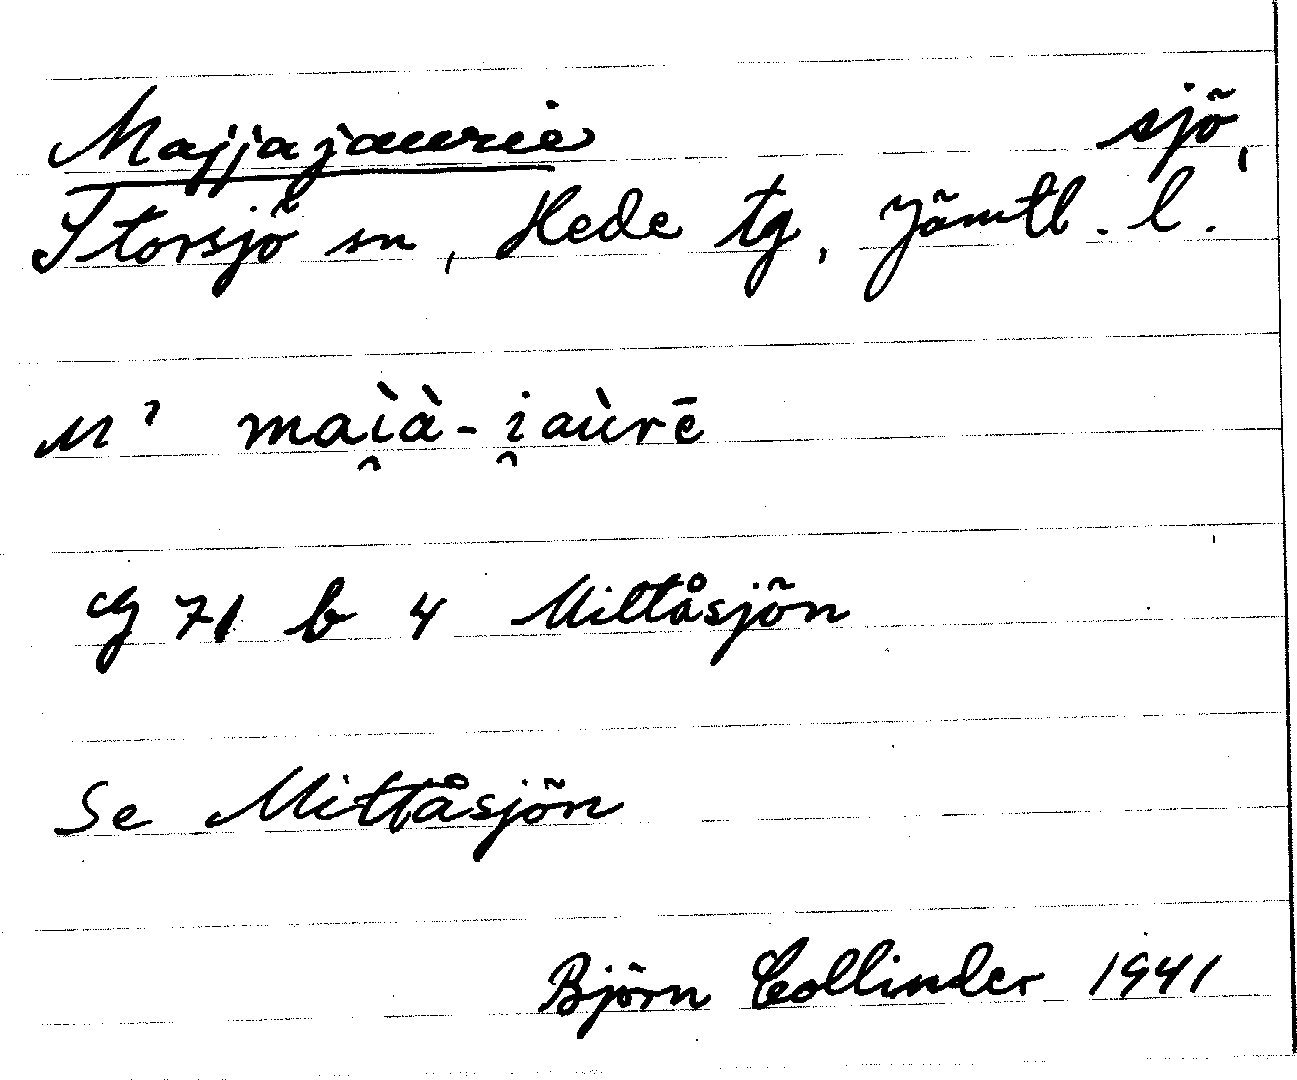 Majjajaurie sjö,
Storsjö sn, Hede tg, Jämtl. l.
M² maì̯à-i̯aùrē
Cg 71 b 4 Mittåsjön
Se Mittåsjön
Björn Collinder 1941